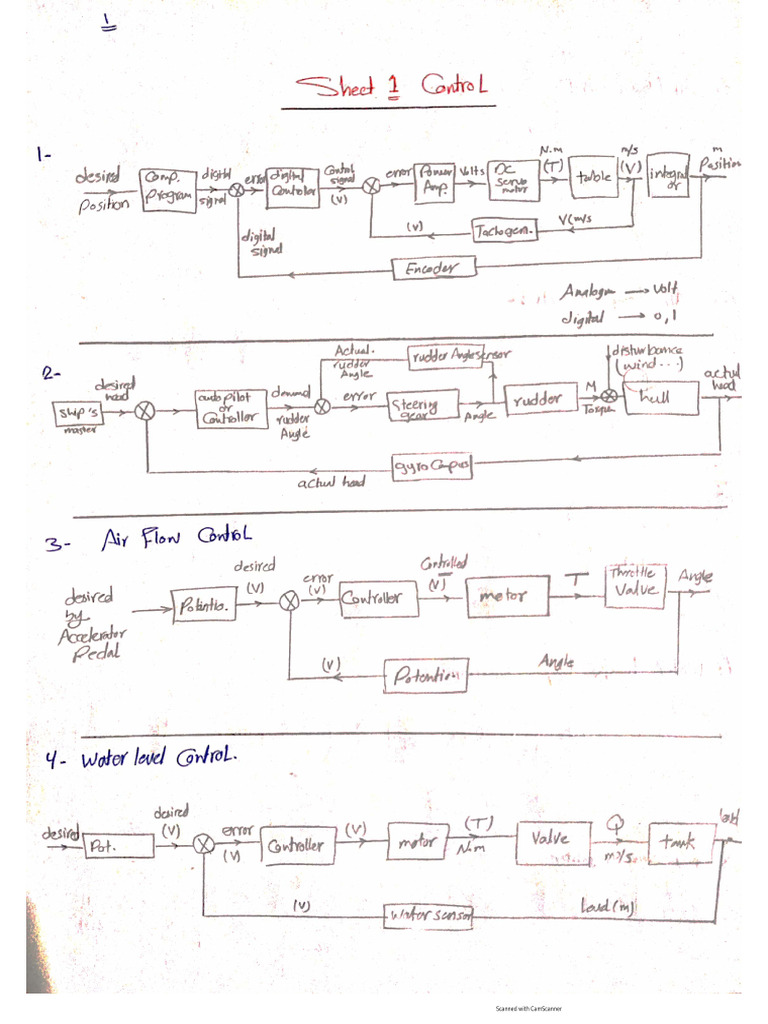 1
Sheet 1 Control
1-
desired
Position
Comp.
Program
digital
signal
error
digital
Controller
Control
signal
(V)
error
Power
Amp.
Volts
DC
servo
motor
N.m
(T)
table
m/s
(V)
integrat
or
m
Position
(V)
Tachogen.
V(m/s
digital
signal
Encoder
Analogm → Volt
digital → 0, 1
2-
Ship's
master
desired
head
autopilot
or
Controller
demand
rudder
Angle
Actual.
rudder
Angle
rudder Angle sensor
error
Steering
gear
Angle
rudder
M
Torque
disturbance
(wind...)
hull
actual
head
gyro Compas
actual head
3- Air Flow Control
desired
by
Accelerator
Pedal
Potentio.
desired
(V)
error
(V)
Controller
Controlled
(V)
motor
T
Throttle
Valve
Angle
(V)
Potention
Angle
4- Water level Control.
desired
Pot.
desired
(V)
error
(V)
Controller
(V)
motor
(T)
N.m
Valve
Q
m³/s
tank
(V)
water sensor
Level (m)
Scanned with CamScanner